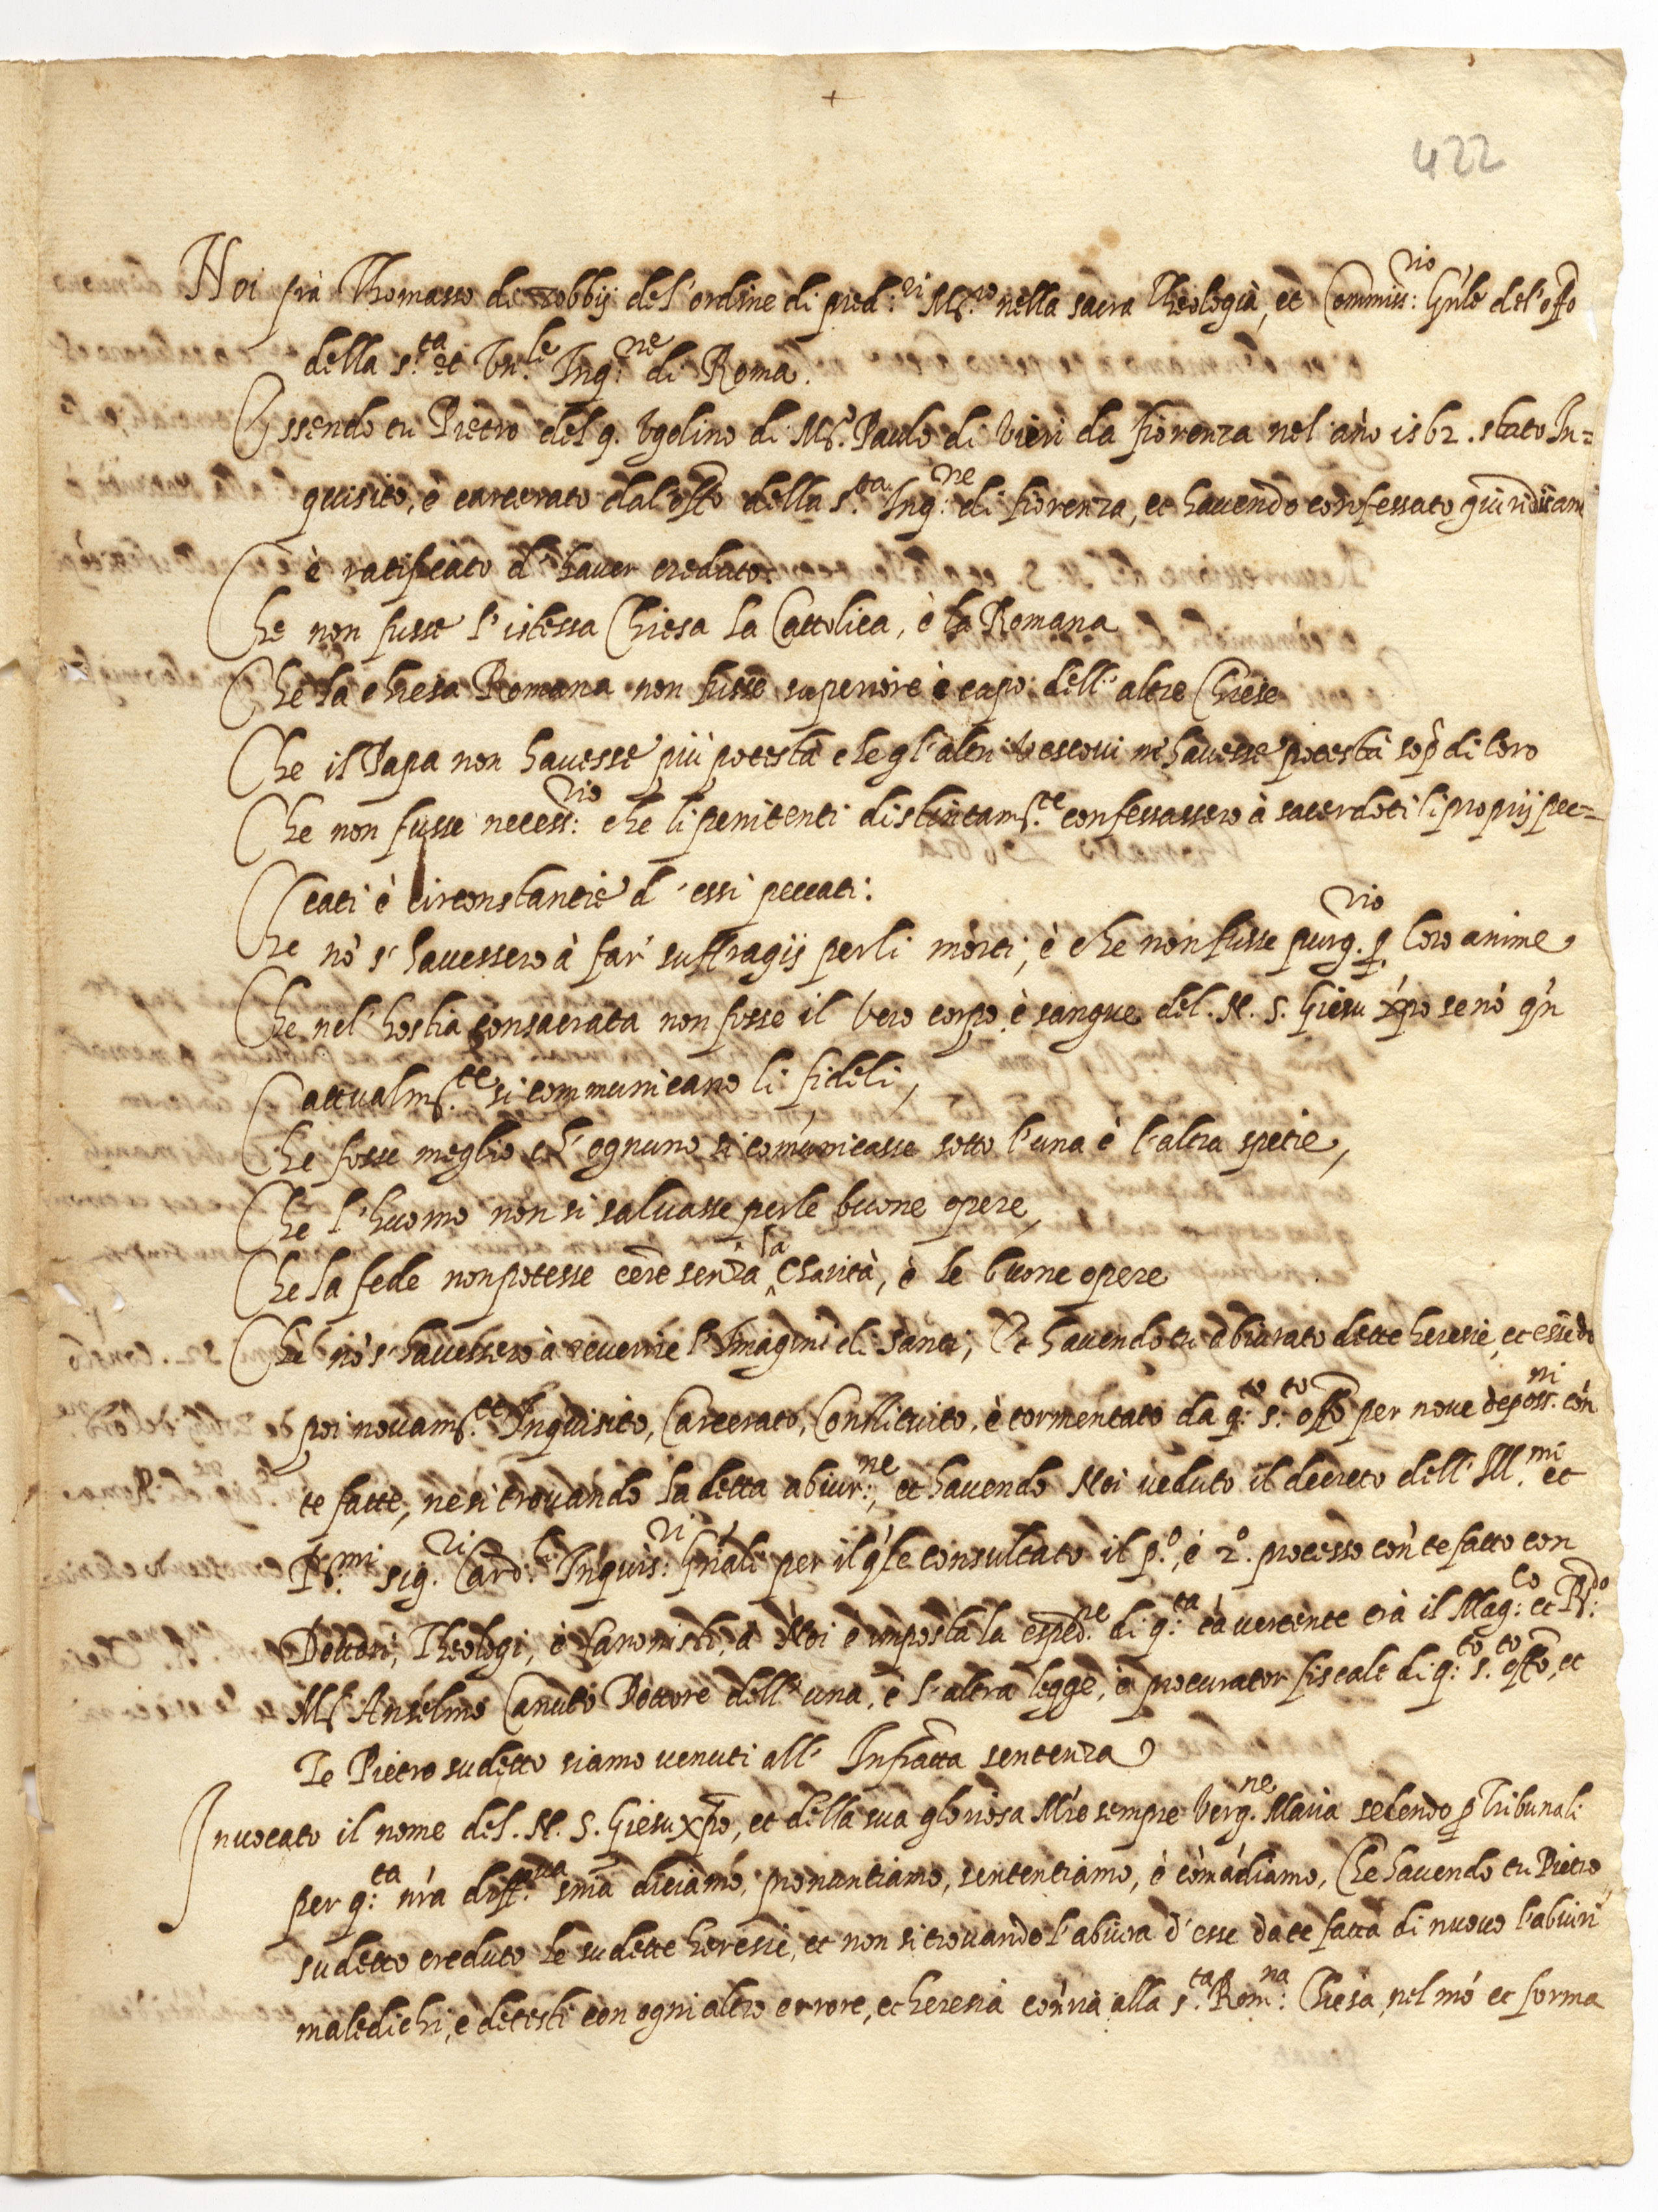 +
422
Noi frà Thomaso di zobbij del'ordine di pred:ri Mr.ro nella sacra Theologia, et Commiss:rio G'nle del'offo
della s.ta et Vn.le Inq:ne di Roma.
Essendo tu Pietro del q. Vgolino di Mr. Paulo di Vieri da fiorenza nel año 1562. stato In=
quisito, è carcerato dal offo della s.ta Inq:ne di fiorenza, et havendo confessato giuridicam
è ratificato d'haver creduto.
Che non fusse l'istessa Chiesa la Cattolica, è la Romana
Che la chiesa Romana non fusse superiore è capo dell'altre Chiese
Che il Papa non havesse più potestà che gl'altri Vescovi ne havesse potestà sop̃ di loro
Che non fusse necess:rio che li penitenti distintam.te confessassero à sacerdoti li proprij pec=
cati è circonstantie d'essi peccati:
Che nõ s'havessero à far' suffragij per li morti, è che non fusse purg.rio p loro anime
Che nel'hostia consacrata non fosse il vero corpo è sangue del. N. S. Giesu xp̃o se nõ q̃n
attualm.te si communicano li fideli,
Che fosse meglio ch'ognuno si comunicasse sotto l'una è l'altra spetie,
Che l'huomo non si salvasse per le buone opere,
Che la fede non potesse eẽre senza la charità, è le buone opere
Che nõ s'havessero à reverire l'Imagini di santi, Et havendo tu abiurato dette heresie, et essẽdo
poi novam.te Inquisito, Carcerato, Constituito, è tormentato da q:to s:to offo per nove deposs:ni cõn
te fatte, ne si trovando la detta abiur:ne, et havendo Noi veduto il decreto dell'Ill.mi et
R.mi sig.ri Card:li Inquis:ri G'nali per il q'le consultato il p.o, è 2.o processo cõn te fatto con
Dottori, Theologi, è Canonisti, à Noi è imposta la exped.ne di q:ta cã vertente trà il Mag:co et R:do
Mr Anselmo Canuto Dottore dell'una, è l'altra legge, è procurator fiscale di q:to s.to offo, et
Te Pietro sudetto siamo venuti all' Infratta sentenza
Invocato il nome del. N. S. Giesu xp̃o, et della sua gloriosa Mrẽ sempre Verg.ne Maria sedendo p Tribunali
per q:ta nr̃a diff.va sm̃a diciamo, pronuntiamo, sententiamo, è cõmãdiamo, Che havendo tu Pietro
sudetto creduto le sudette heresie, et non si trovando l'abiura d'esse da te fatta di nuovo l'abiuri
maledichi, e detesti con ogni altro errore, et heresia cõnria alla s.ta Rom:na Chiesa, nel mõ et forma